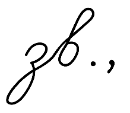 зв.,